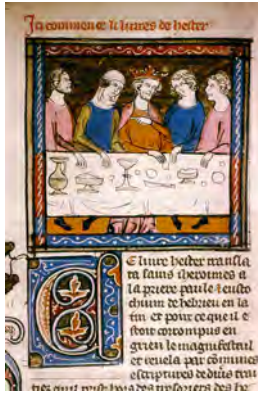 Ici commence li liures de hester
E liure hester transla
ta sains iheroimes a
la priere paule & eusto
chium de hebrieu en la
tin et pour ce que il e
stoit corrompus en
grieu le magnifestail
et reuela par cõmunes
escriptures de diũs trai